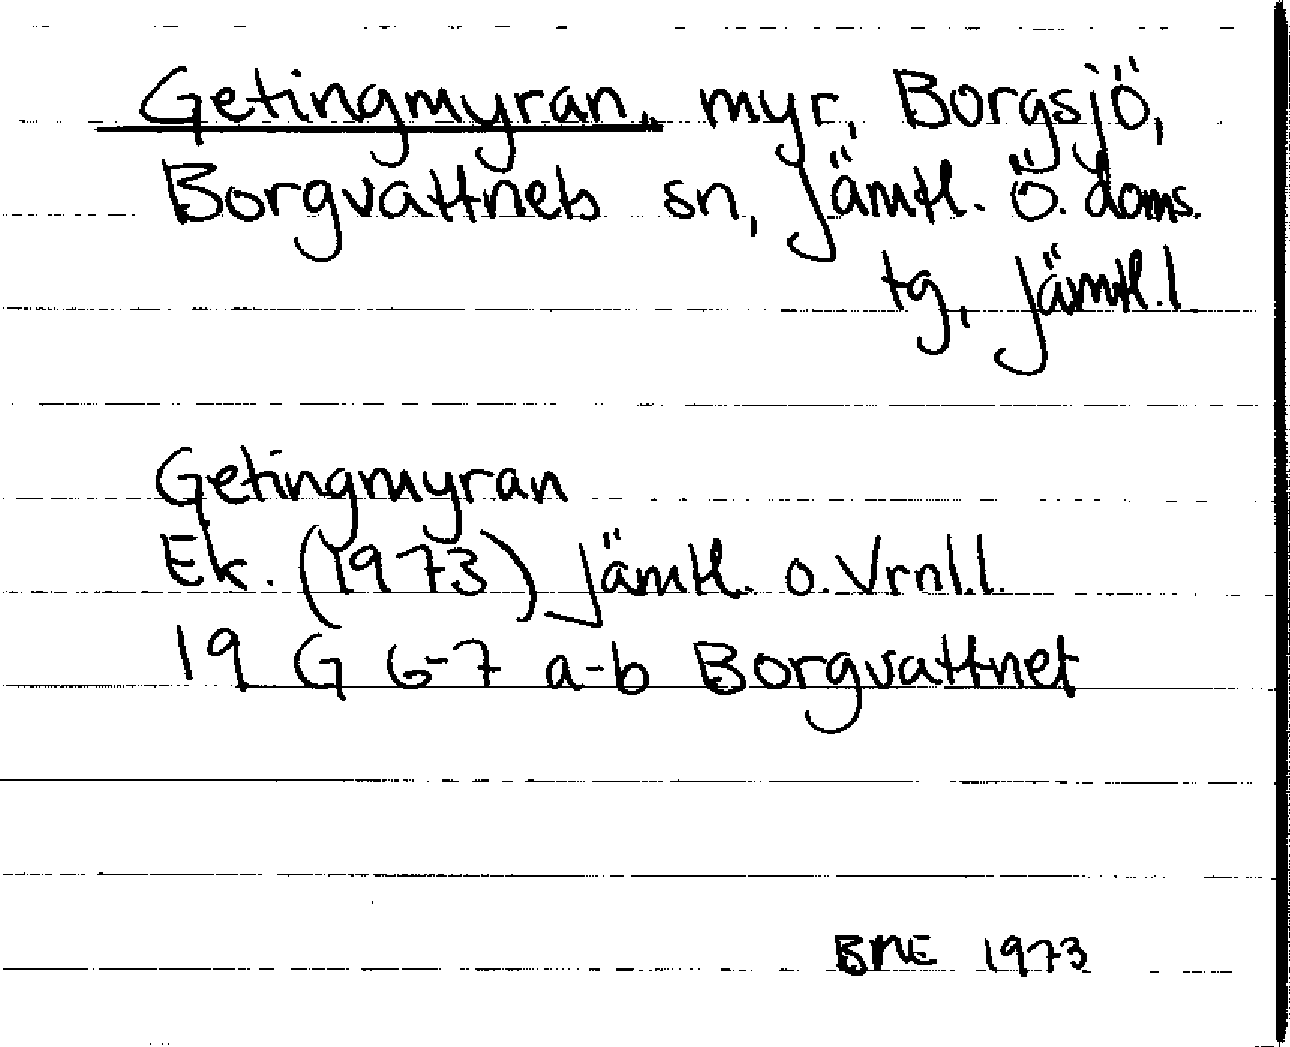 Getingmyran, myr, Borgsjö,
Borgvattnets sn, Jämtl. Ö. doms.
tg, Jämtl. l
Getingmyran
Ek. (1973) Jämtl. o. Vrnl. l.
19 G 6-7 a-b Borgvattnet
BME 1973